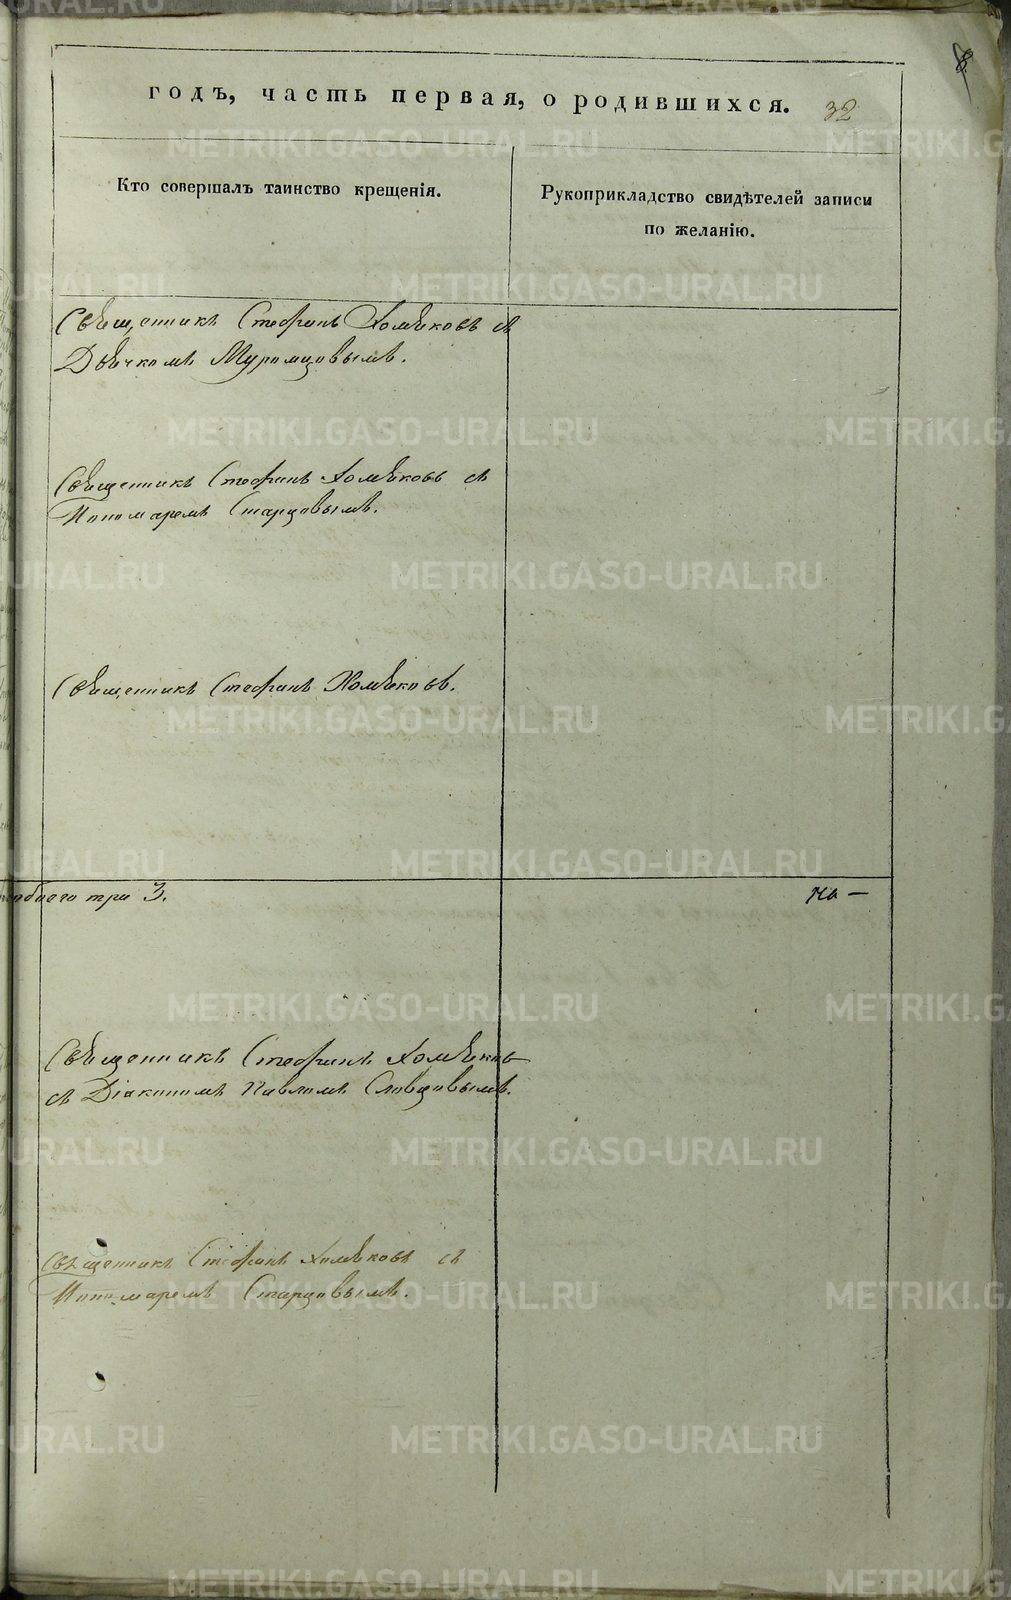 8
годъ, часть первая, о родившихся. 32
Кто совершалъ таинство крещенія.
Рукоприкладство свидѣтелей записи
по желанію.
Священникъ Стефанъ Хомяковъ съ
Дьячкомъ Муромцовымъ.
Священникъ Стефанъ Хомяковъ съ
Пономаремъ Старцовымъ.
Священникъ Стефанъ Хомяковъ.
три 3.
Священникъ Стефанъ Хомяковъ
съ Діакономъ Павломъ Словцовымъ.
Священникъ Стефанъ Хомяковъ съ
Пономаремъ Старцовымъ.
METRIKI.GASO-URAL.RU